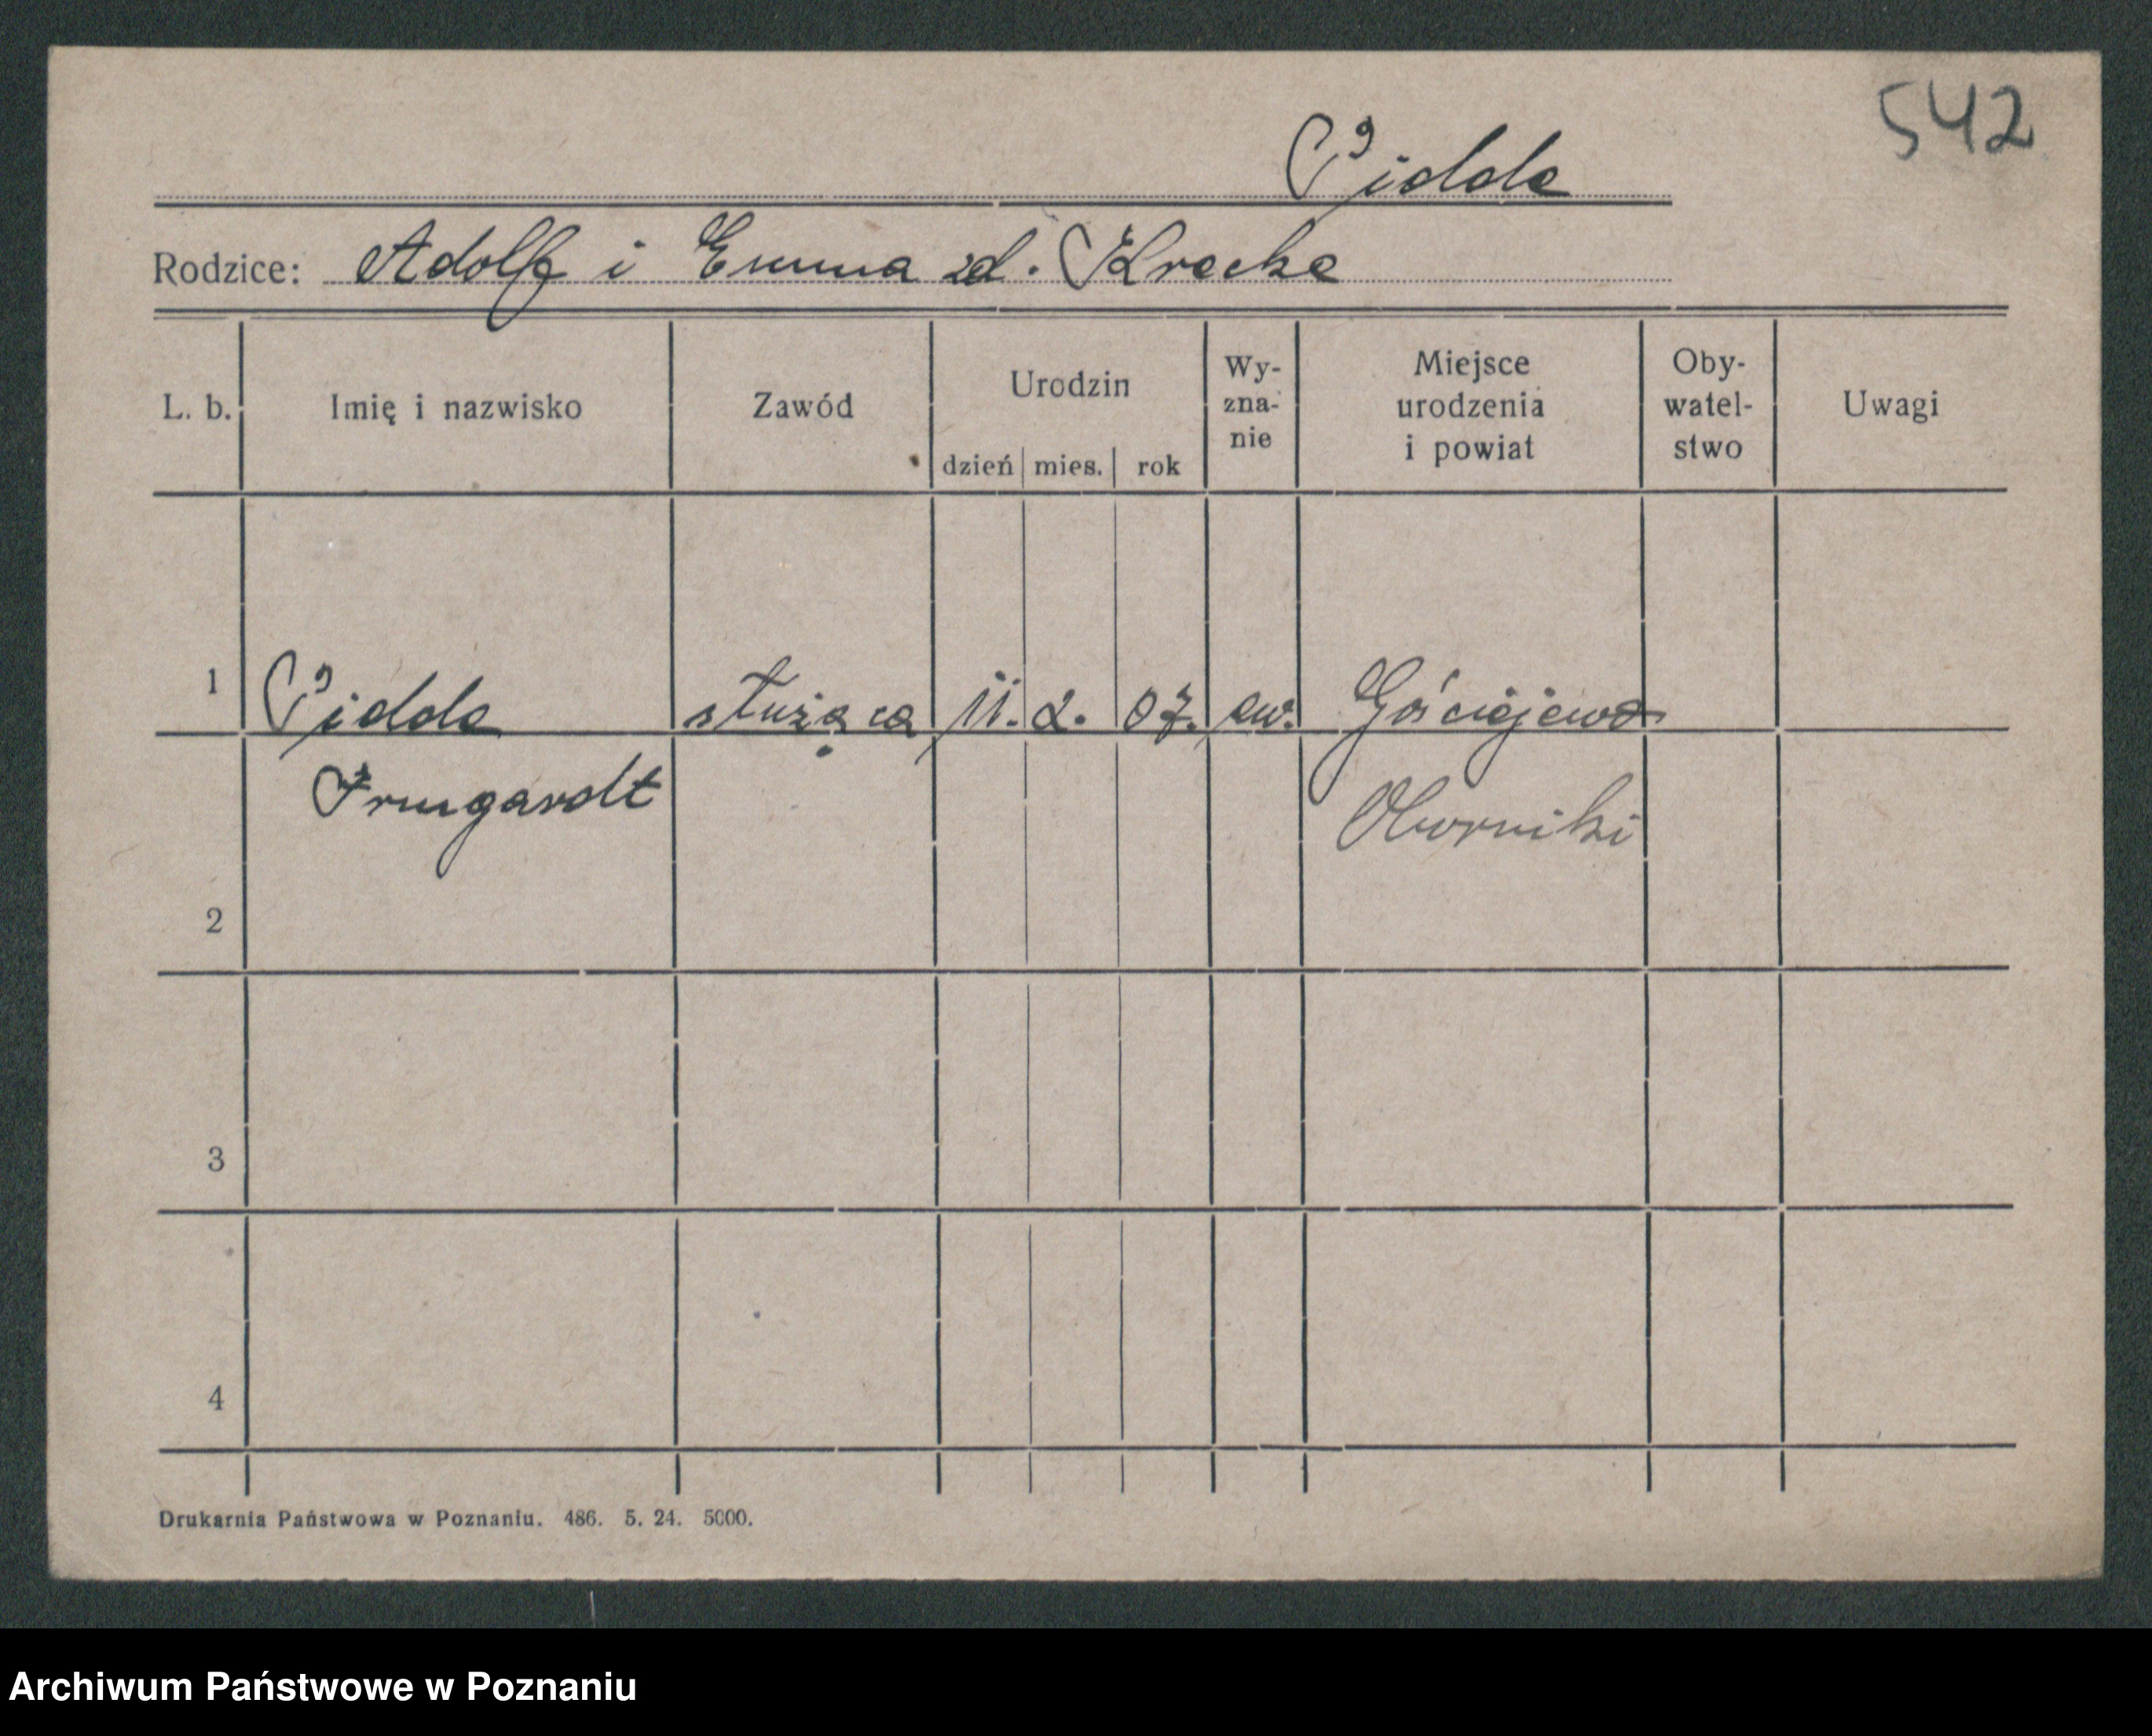 542
Pidde
Rodzice: Adolf i Emma zd. Krecke
L. b. Imię i nazwisko Zawód Urodzin dzień mies. rok Wy-zna-nie Miejsce urodzenia i powiat Oby-watel-stwo Uwagi
1 Pidde służąca 11. 2. 07. ew. Gościejewo
Irmgardt Oborniki
2
3
4
Drukarnia Państwowa w Poznaniu. 486. 5. 24. 5000.
Archiwum Państwowe w Poznaniu